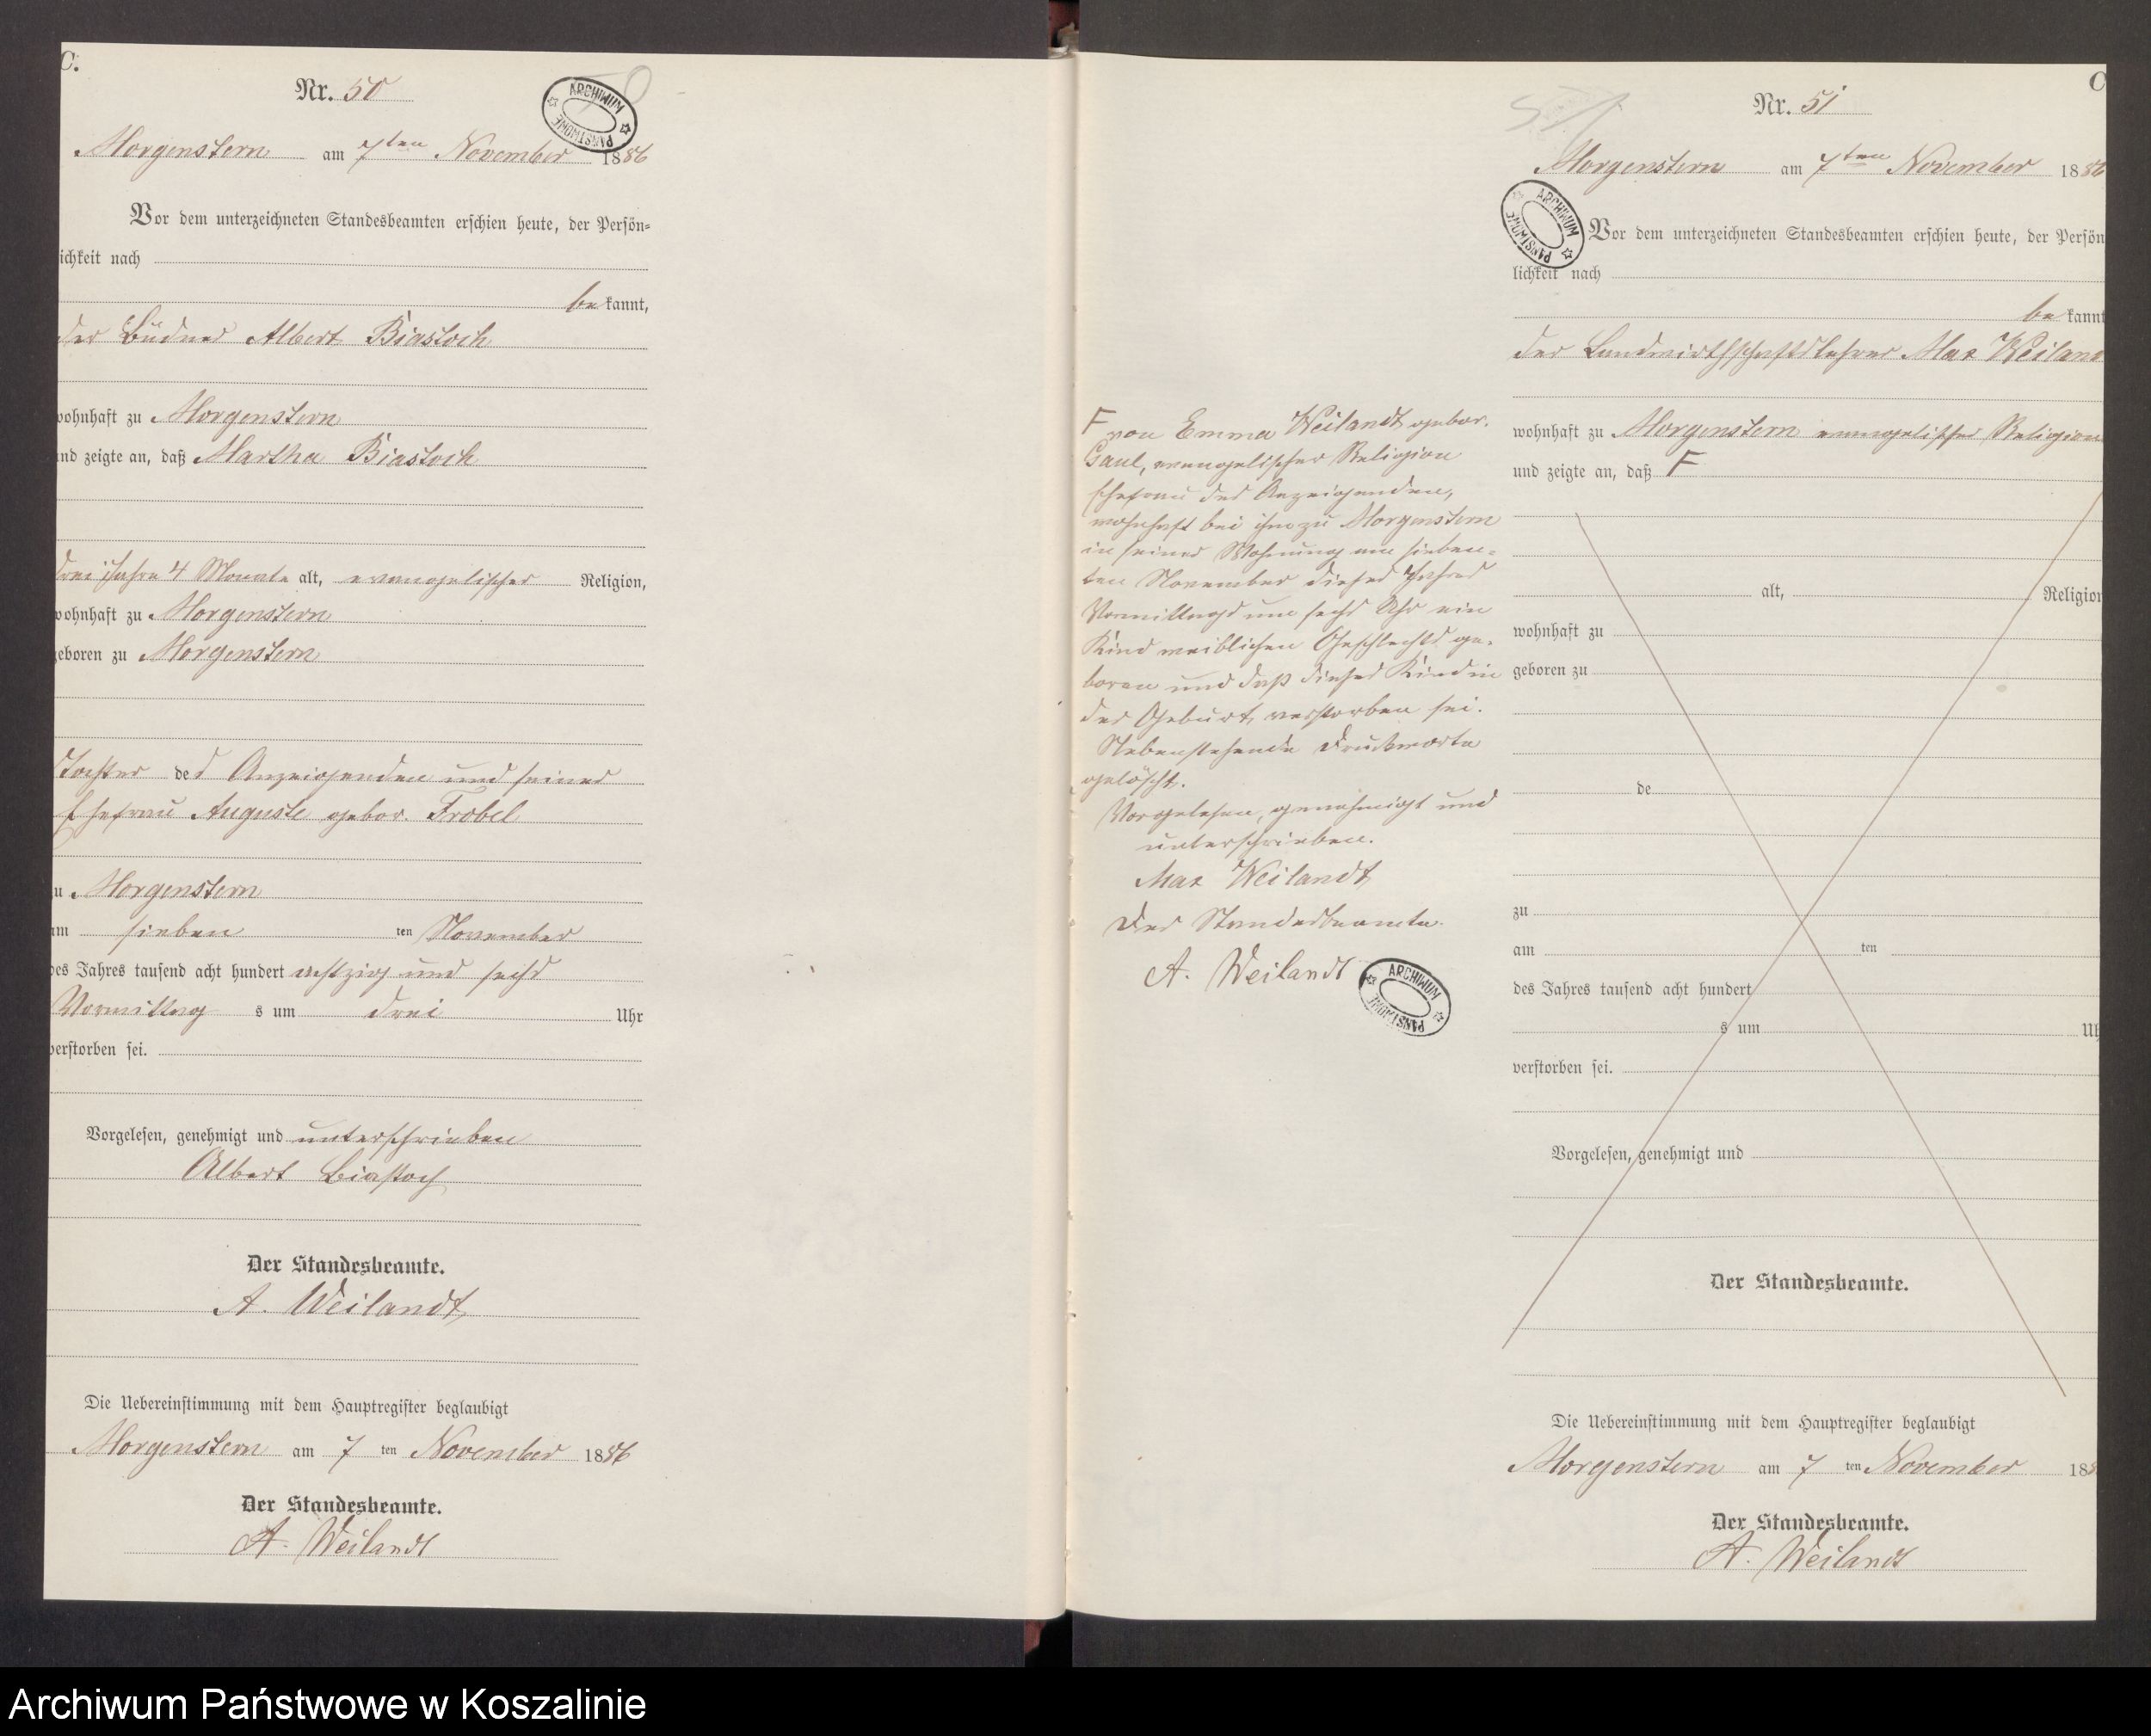 C.
Nr. 50
50
ARCHIWUM PAŃSTWOWE
Morgenstern am 7ten November 1886
Vor dem unterzeichneten Standesbeamten erschien heute, der Persön-
ichkeit nach
be kannt,
der Büdner Albert Biastoch
wohnhaft zu Morgenstern
und zeigte an, daß Martha Biastoch
drei Jahre 4 Monate alt, evangelischer Religion,
wohnhaft zu Morgenstern
geboren zu Morgenstern
Tochter des Anzeigenden und seiner
Ehefrau Auguste gebor. Frobel
zu Morgenstern
am sieben ten November
des Jahres tausend acht hundert achtzig und sechs
Vormittag s um drei Uhr
verstorben sei.
Vorgelesen, genehmigt und unterschrieben
Albert Biastoch
Der Standesbeamte.
A. Weilandt
Die Uebereinstimmung mit dem Hauptregister beglaubigt
Morgenstern am 7 ten November 1886
Der Standesbeamte.
A. Weilandt
F von Emma Weilandt gebor.
Gaul, evangelischer Religion
Ehefrau des Anzeigenden,
wohnhaft bei ihm zu Morgenstern
in seiner Wohnung am sieben-
ten November dieses Jahres
Vormittags um sechs Uhr ein
Kind weiblichen Geschlechts ge-
boren und daß dieses Kind in
der Geburt verstorben sei.
Nebenstehende Druckworte
gelöscht.
Vorgelesen, genehmigt und
unterschrieben.
Max Weilandt
Der Standesbeamte.
A. Weilandt
ARCHIWUM PAŃSTWOWE
C
Nr. 51
51
Morgenstern am 7ten November 1886
ARCHIWUM PAŃSTWOWE
Vor dem unterzeichneten Standesbeamten erschien heute, der Persön
lichkeit nach
be kannt
der Landwirthschaftslehrer Max Weiland
wohnhaft zu Morgenstern evangelischer Religion
und zeigte an, daß F
alt, Religion
wohnhaft zu
geboren zu
de
zu
am ten
des Jahres tausend acht hundert
s um Uh
verstorben sei.
Vorgelesen, genehmigt und
Der Standesbeamte.
Die Uebereinstimmung mit dem Hauptregister beglaubigt
Morgenstern am 7 ten November 188
Der Standesbeamte.
A. Weilandt
Archiwum Państwowe w Koszalinie